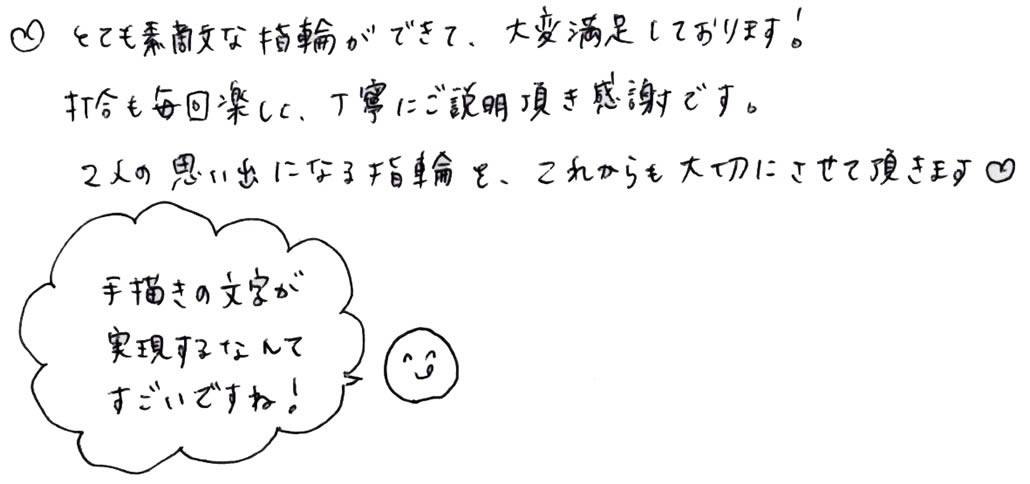 ♡ とても素敵な指輪ができて、大変満足しております!
打合も毎回楽しく、丁寧にご説明頂き感謝です。
2人の思い出になる指輪を、これからも大切にさせて頂きます♡
手描きの文字が
実現するなんて
すごいですね!